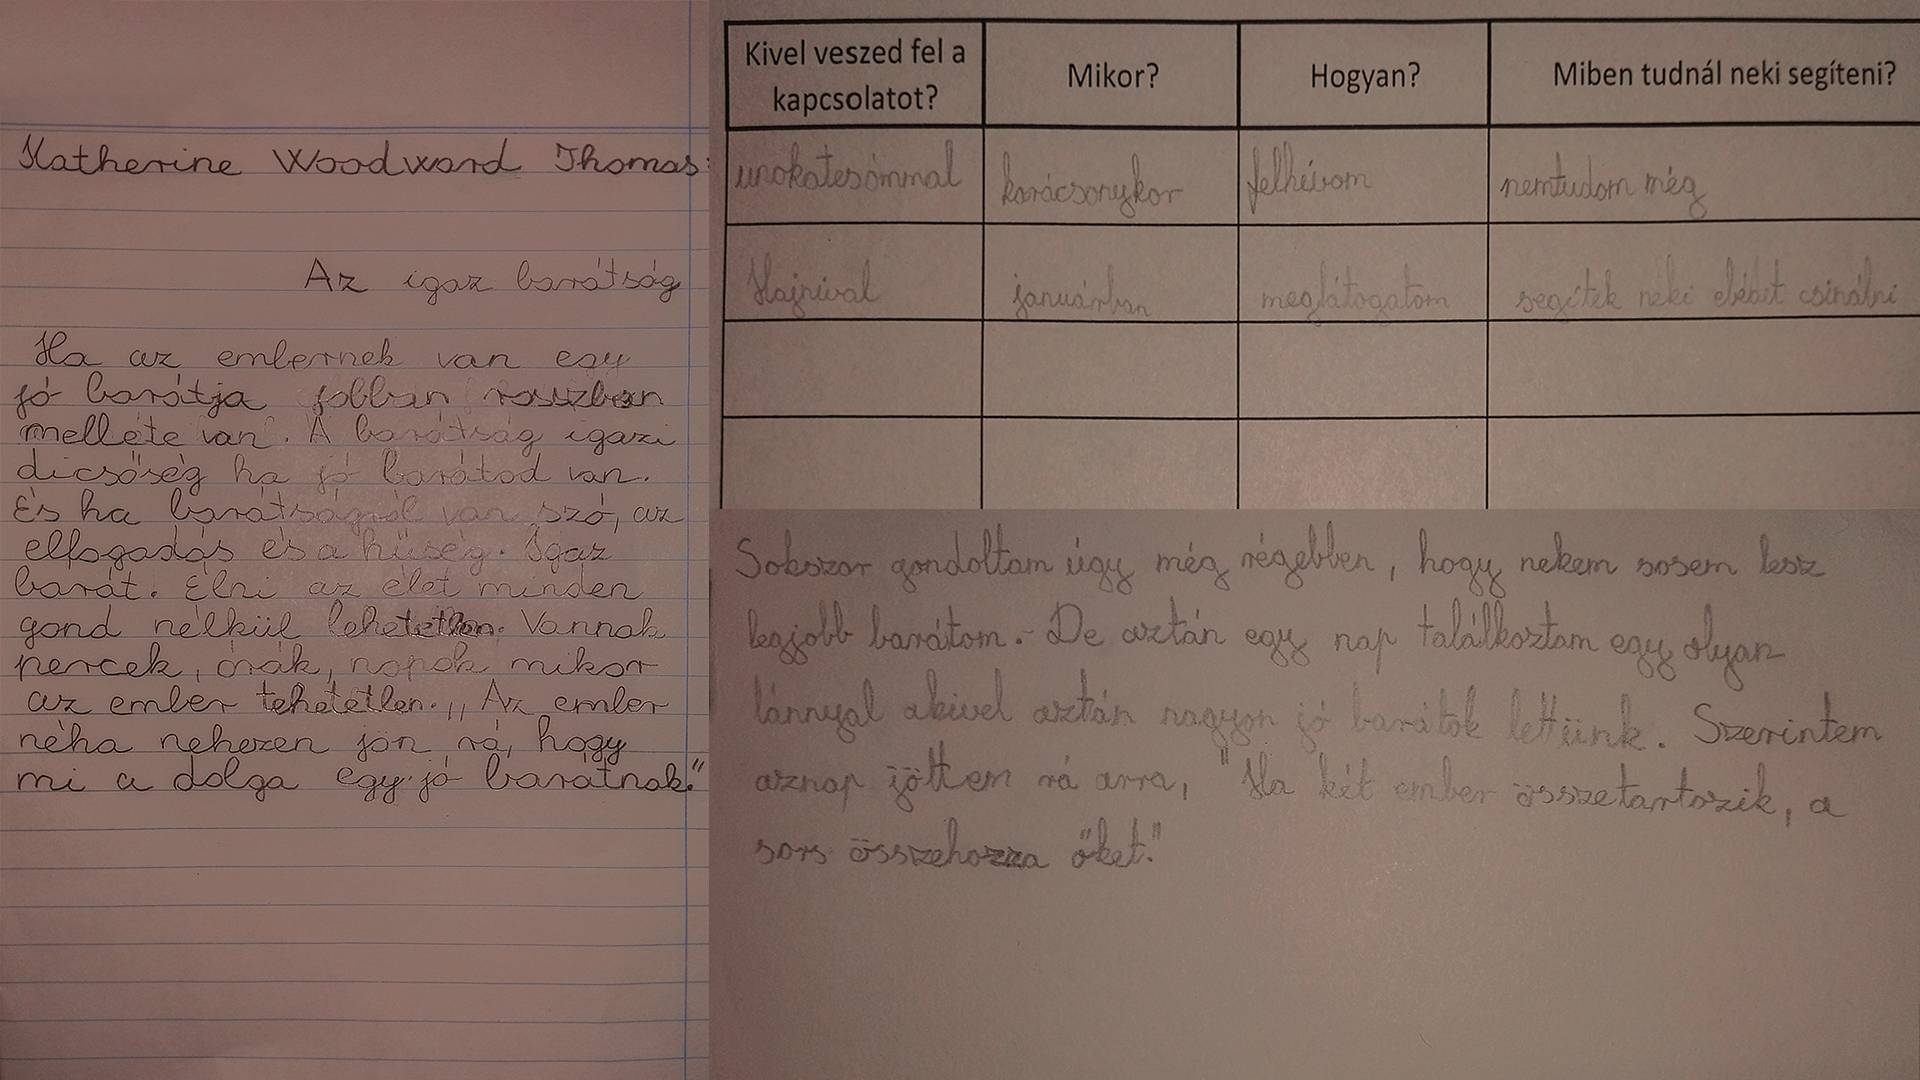 Katherine Woodward Thomas:
Az igaz barátság
Ha az embernek van egy
jó barátja jobban rosszban
mellete van. A barátság igazi
dicsőség ha jó barátod van.
És ha barátságról van szó, az
elfogadás és a hűség. Igaz
barát. Élni az élet minden
gond nélkül lehetetlen. Vannak
percek, órák, napok mikor
az ember tehetetlen. ,, Az ember
néha nehezen jön rá, hogy
mi a dolga egy jó barátnak."
Kivel veszed fel a kapcsolatot? Mikor? Hogyan? Miben tudnál neki segíteni?
unokatesómmal karácsonykor felhívom nemtudom még
Hajnival januárban meglátogatom segítek neki ebédet csinálni
Sokszor gondoltam úgy még régebben, hogy nekem sosem lesz
legjobb barátom. De aztán egy nap találkoztam egy olyan
lánnyal akivel aztán nagyon jó barátok lettünk. Szerintem
aznap jöttem rá arra, "Ha két ember összetartozik, a
sors összehozza őket."